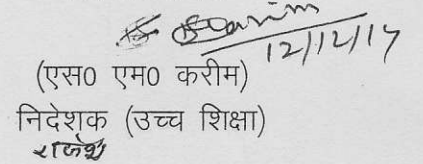 12/12/17
(एस0 एम0 करीम)
निदेशक (उच्च शिक्षा)
राजेश